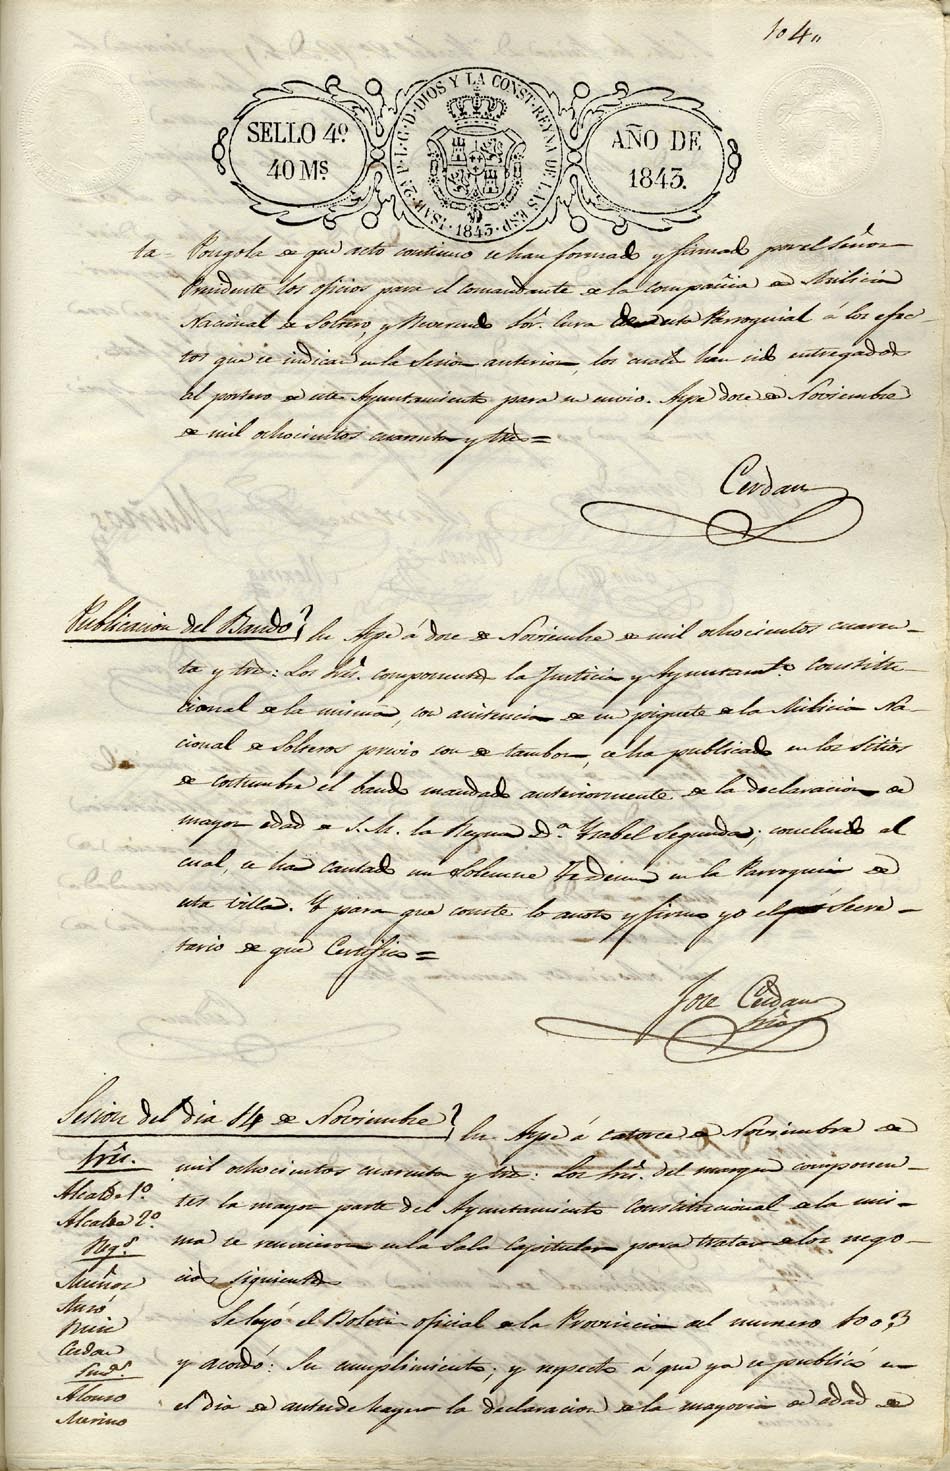 104,,
SELLO 4º
40 Mˢ
ISAB. 2ª P. L. G. D. DIOS Y LA CONST. REYNA DE LAS ESP.
1843
AÑO DE
1843.
ta = Pongola de que acto continuo se han formado y firmado por el Señor
Presidente los oficios para el comandante de la compañia de Milicia
Nacional de Solteros, y Reverendo Sor. Cura de esta Parroquial á los efec-
tos que se indican en la Sesion anterior, los cuales han sido entregados
al portero de este Ayuntamiento para su envio. Aspe doce de Noviembre
de mil ochocientos cuarenta y tres =
Cerdan
Publicacion del Bando} En Aspe á doce de Noviembre de mil ochocientos cuaren-
ta y tres: Los Sres. componentes la Justicia y Ayuntamto. Constitu-
cional de la misma, con asistencia de un piquete de la Milicia Na-
cional de Solteros previo son de tambor, se ha publicado en los sitios
de costumbre el bando mandado anteriormente de la declaracion de
mayor edad de S. M. la Reyna Dª. Ysabel Segunda; concluido el
cual, se ha cantado un solemne Tedeum en la Parroquia de
esta villa. Y para que conste lo anoto y firmo yo el Secre-
tario de que Certifico =
Jose Cerdan
Srio
Sesion del dia 14 de Noviembre} En Aspe á catorce de Noviembre de
Sres. mil ochocientos cuarenta y tres: Los Sres. del margen componen-
Alcalde 1º tes la mayor parte del Ayuntamiento Constitucional de la mis-
Alcalde 2º
Regs. ma se reunieron en la Sala Capitular para tratar de los nego-
Muñoz cios siguientes
Mira Se leyó el Boletin oficial de la Provincia del numero 1003
Cerdan y acordó: Su cumplimiento; y respecto á que ya se publicó en
Sinds.
Alonso el dia de antes de hayer la declaracion de la mayoria de edad de